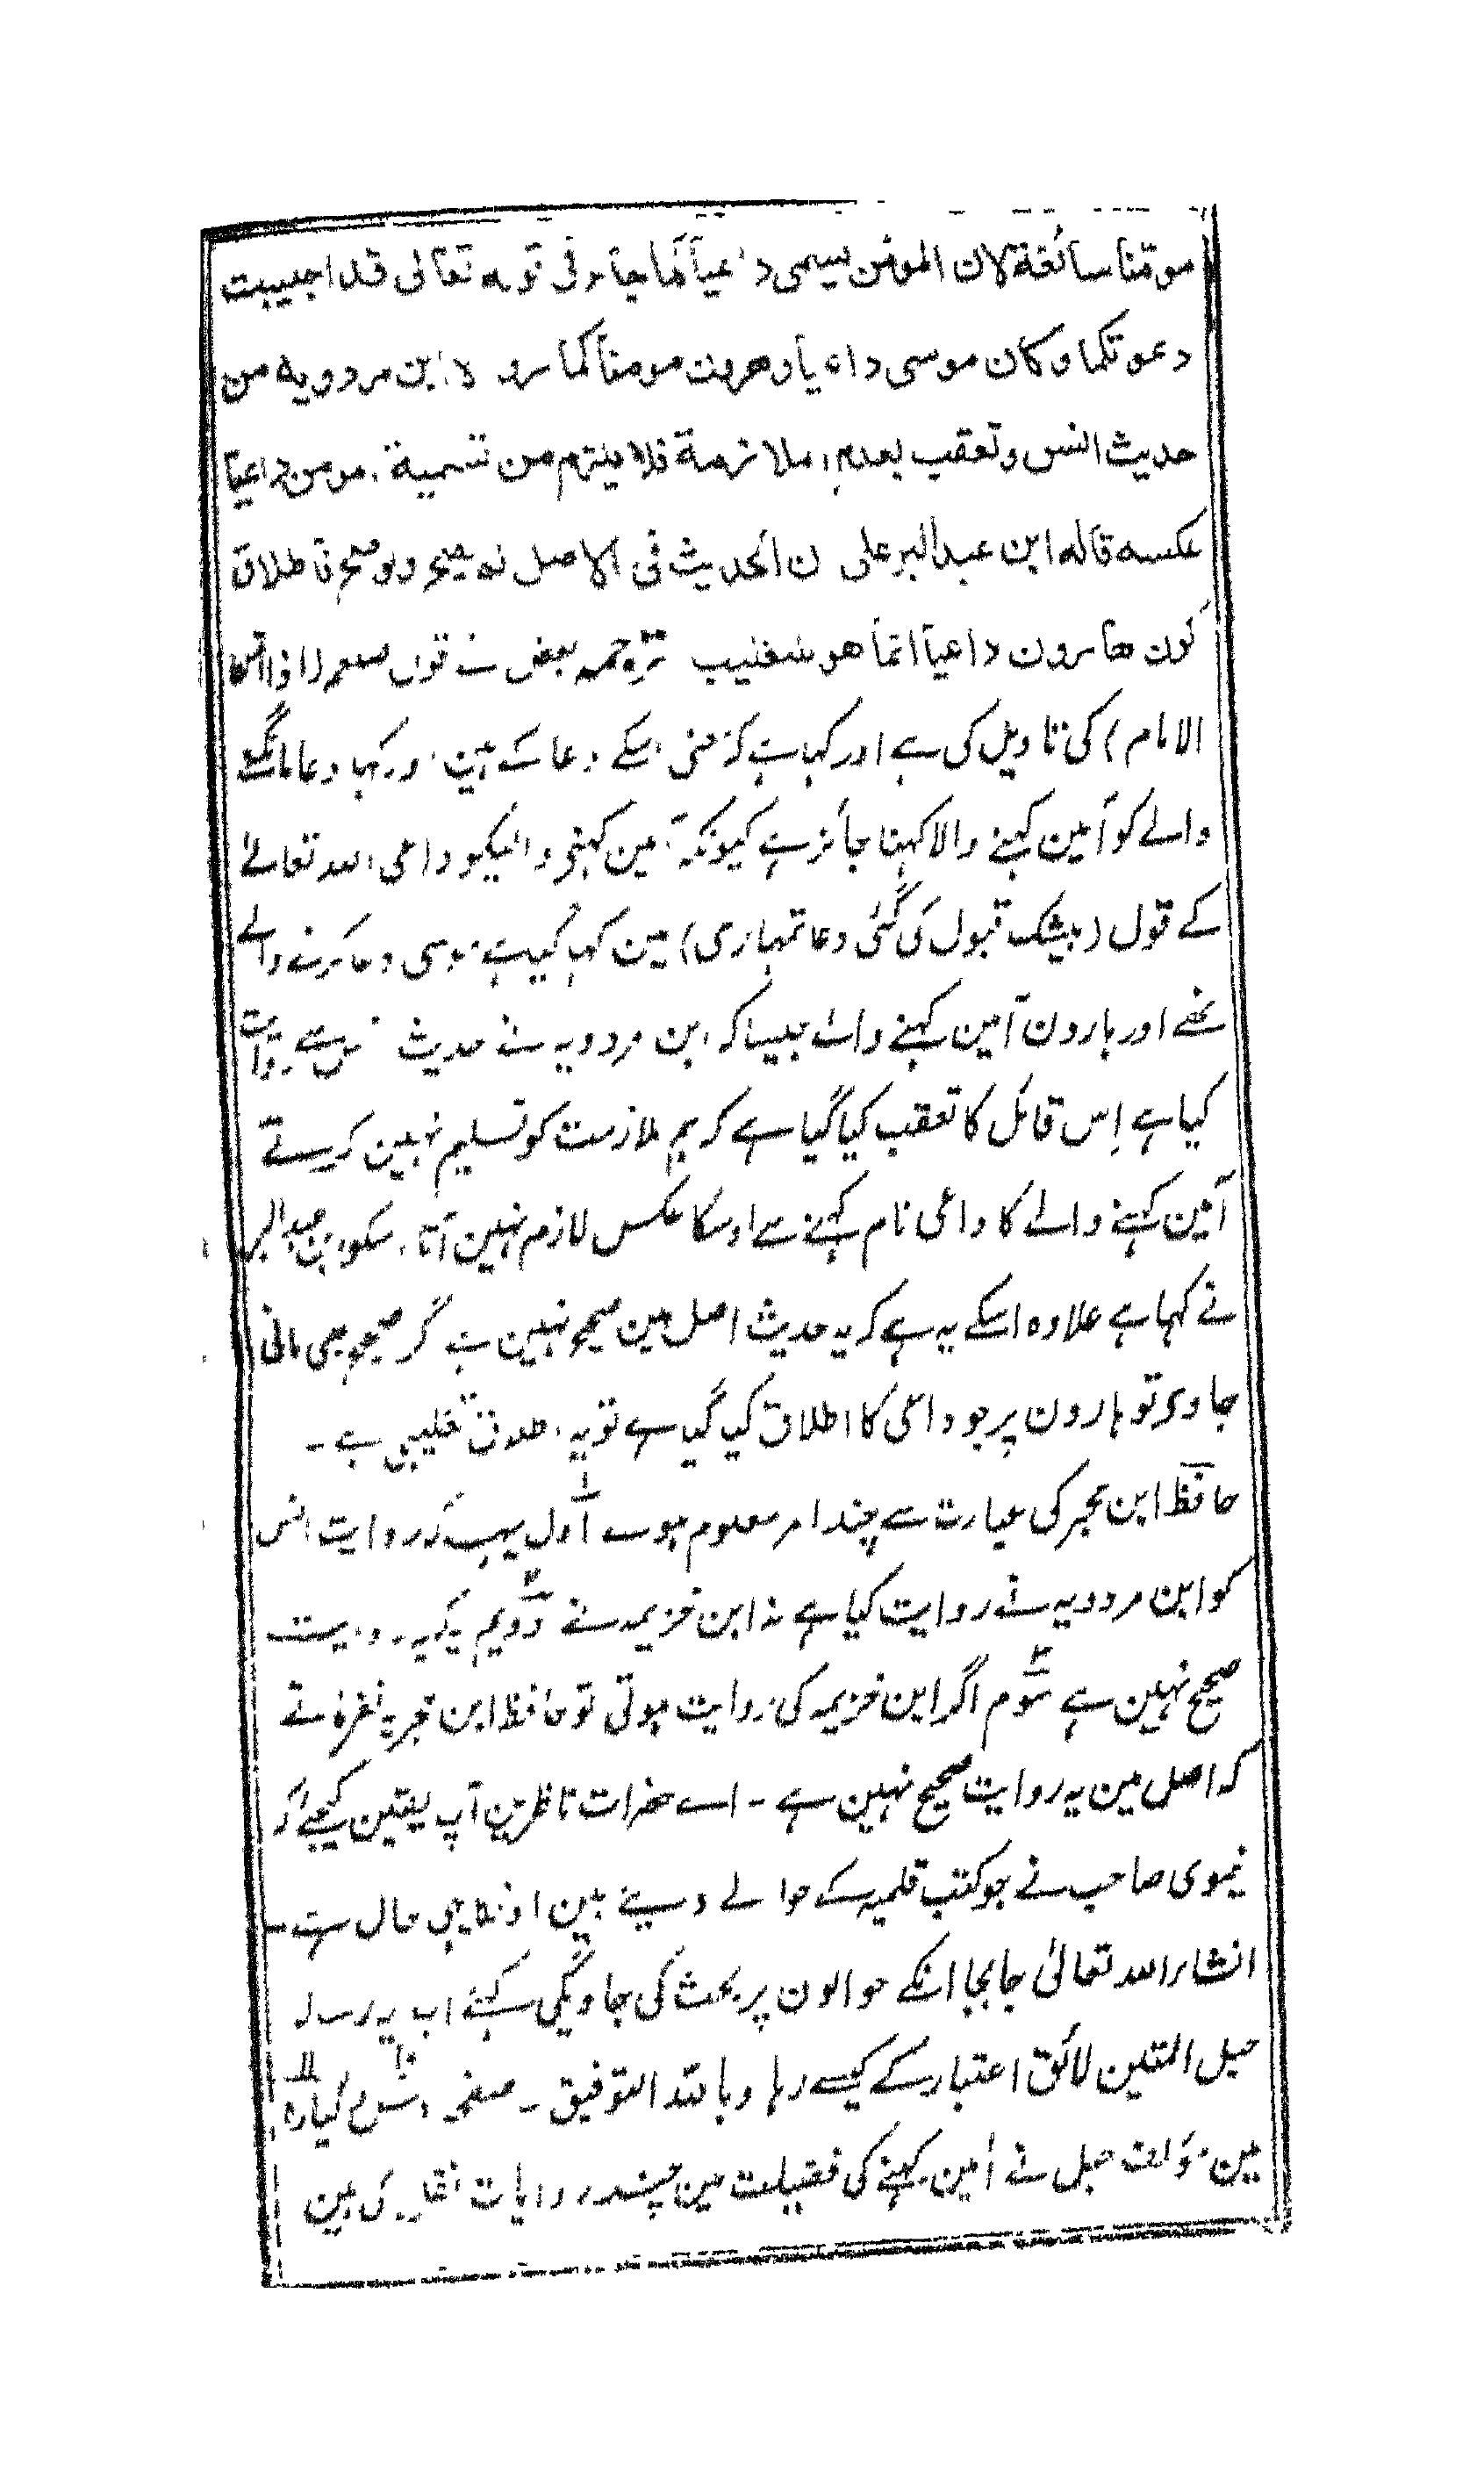 مومنا سائغة لان المومن يسمى داعياً كما جاء فى قوله تعالى قد اجيبت
دعوتكما وكان موسى داعياً وهرون مومناً كما رواه ابن مردويه من
حديث انس وتعقب بعدم الملازمة فلا يلزم من تسمية المومن داعياً
عكسه قاله ابن عبدالبر على ان الحديث فى الاصل لم يصح ولو صح فاطلاق
كون هارون داعياً انما هو للتغليب ترجمہ بعض نے قول صلعم (اذا امن
الامام) کی تاویل کی ہے اور کہا ہے کہ معنی اسکے دعا کے ہین اور کہا دعا مانگنے
والے کو آمین کہنے والا کہنا جائز ہے کیونکہ آمین کہنے والیکو داعی اللہ تعالےٰ
کے قول (بیشک قبول کی گئی دعا تمہاری) مین کہا گیا ہے موسی دعا کرنے والے
تھے اور ہارون آمین کہنے والے جیسا کہ ابن مردویہ نے حدیث انس سے روایت
کیا ہے اِس قائل کا تعقب کیا گیا ہے کہ ہم ملازمت کو تسلیم نہین کرتے
آمین کہنے والے کا داعی نام کہنے سے اوسکا عکس لازم نہین آتا اسکو ابن عبدالبر
نے کہا ہے علاوہ اسکے یہ ہے کہ یہ حدیث اصل مین صحیح نہین ہے گر صحیح بھی مانی
جاوے تو ہارون پر جو داعی کا اطلاق کیا گیا ہے تو یہ اطلاق تغلیبی ہے ۔
حافظ ابن حجر کی عبارت سے چند امر معلوم ہوے اول یہہ کہ روایت انس
کو ابن مردویہ نے روایت کیا ہے نہ ابن خزیمہ نے دویم یہ کہ یہ روایت
صحیح نہین ہے سوم اگر ابن خزیمہ کی روایت ہوتی تو حافظ ابن حجر یہ نفرماتے
کہ اصل مین یہ روایت صحیح نہین ہے ۔ اے حضرات ناظرین آپ یقین کیجئے کہ
نیموی صاحب نے جو کتب قلمیہ کے حوالے دیئے ہین اونکا یہی حال ہے ۔
انشاء اللہ تعالیٰ جابجا انکے حوالون پر بحث کی جاویگی کہئے اب یہ رسالہ
حبل المتین لائق اعتبار کے کیسے رہا وباللہ التوفیق ۔ صفحہ دس و گیارہ
مین مؤلف حبل نے آمین کہنے کی فضیلت مین چند روایات نقل کی ہین